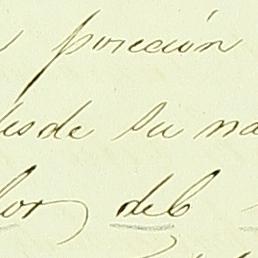 porección
desde su na
lor del